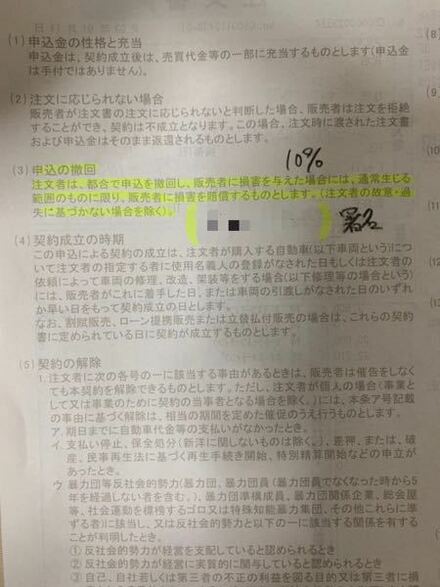 (1)申込金の性格と充当
申込金は、契約成立後は、売買代金等の一部に充当するものとします(申込金
は手付ではありません)。
(2)注文に応じられない場合
販売者が注文書の注文に応じられないと判断した場合、販売者は注文を拒絶
することができ、契約は不成立となります。この場合、注文時に渡された注文書
および申込金はそのまま返還されるものとします。
10%
(3)申込の撤回
注文者は、都合で申込を撤回し、販売者に損害を与えた場合には、通常生じる
範囲のものに限り、販売者に損害を賠償するものとします。(注文者の故意・過
失に基づかない場合を除く)。
署名
(4)契約成立の時期
この申込による契約の成立は、注文者が購入する自動車(以下車両という)につ
いて注文者の指定する者に使用名義人の登録がなされた日もしくは注文者の
依頼によって車両の修理、改造、架装等をする場合(以下修理等の場合という)
には、販売者がこれに着手した日、または車両の引渡しがなされた日のいずれ
か早い日をもって契約成立の日とします。
なお、割賦販売、ローン提携販売または立替払付販売の場合は、これらの契約
書に定められている日に契約が成立するものとします。
(5)契約の解除
1.注文者に次の各号の一に該当する事由があるときは、販売者は催告をしなく
ても本契約を解除できるものとします。ただし、注文者が個人の場合(事業とし
て又は事業のために契約の当事者となる場合を除く。)には、本条ア号記載
の事由に基づく解除は、相当の期間を定めた催促のうえ行うものとします。
ア.期日までに自動車代金等の支払いがなかったとき。
イ.支払い停止、保全処分(新洋に関しないものは除く。)、差押、または、破
産、民事再生法に基づく再生手続き開始、特別精算開始などの申立が
あったとき。
ウ.暴力団等反社会的勢力(暴力団、暴力団員(暴力団員でなくなった時から5
年を経過しない者を含む。)、暴力団準構成員、暴力団関係企業、総会屋
等、社会運動を標榜するゴロ又は特殊知能暴力集団、その他これらに準
ずる者)に該当し、又は反社会的勢力と以下の一に該当する関係を有する
ことが判明したとき。
① 反社会的勢力が経営を支配していると認められるとき
② 反社会的勢力が経営に実質的に関与していると認められるとき
③ 自己、自社若しくは第三者の不正の利益を図る目的又は第三者に損